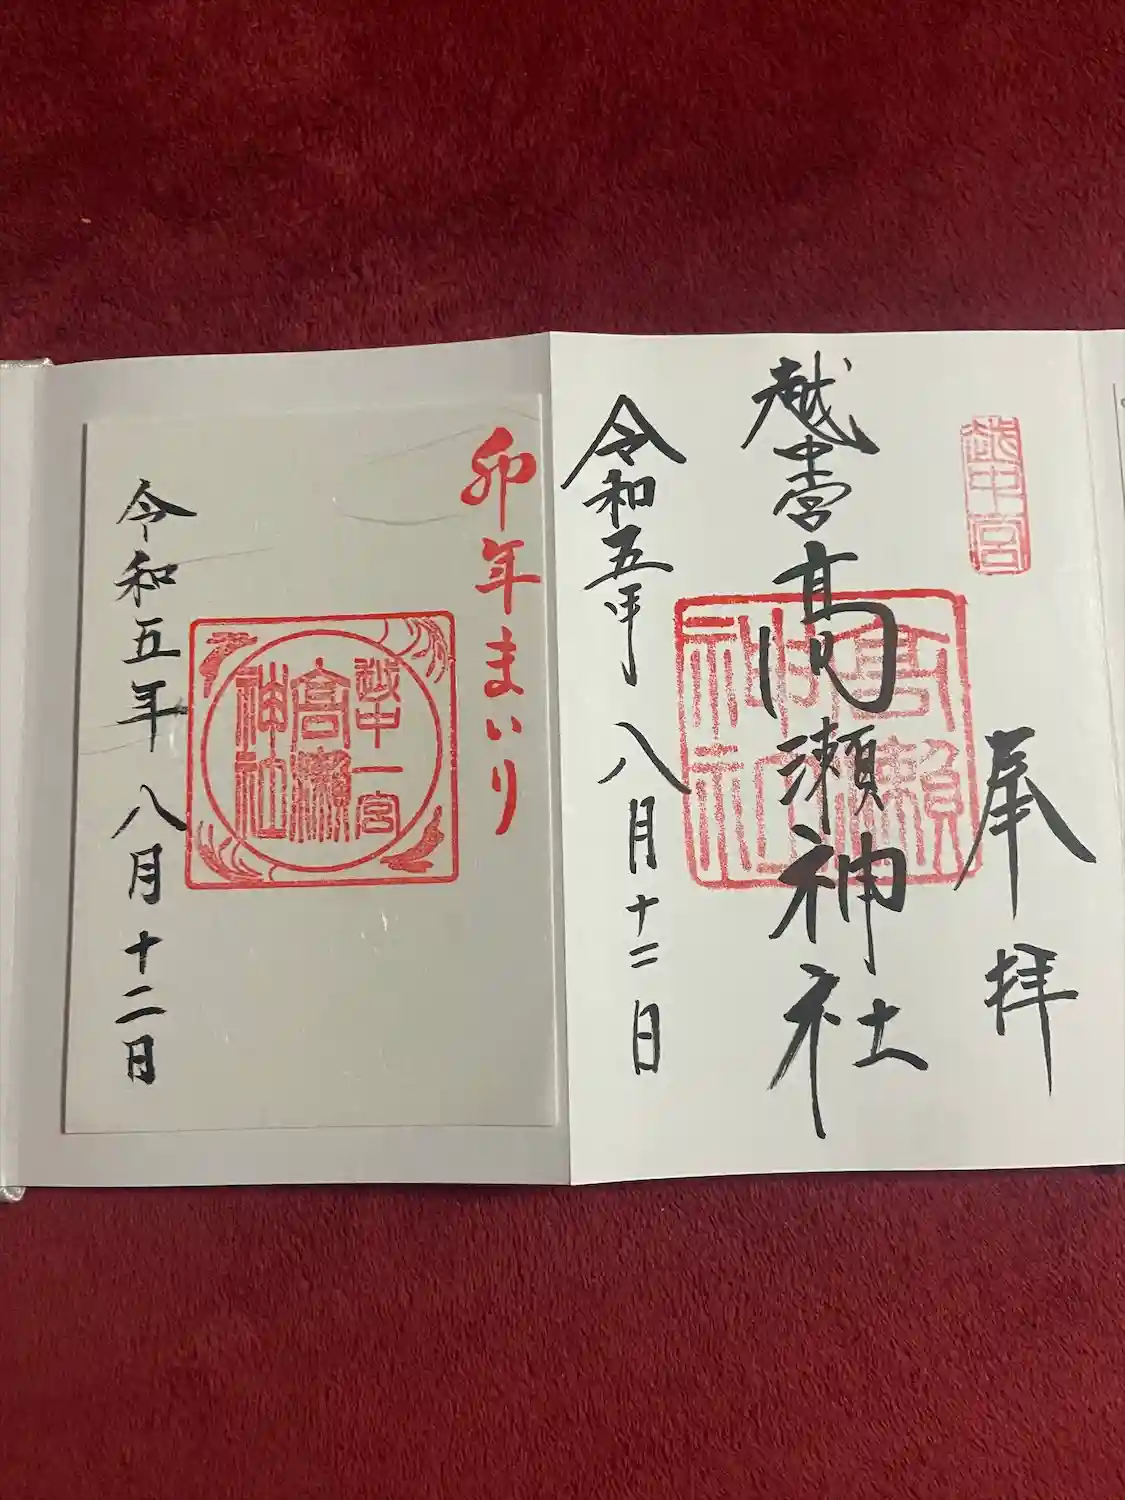 奉拝
越中一宮
越中一宮
高瀬神社
高瀬神社
令和五年
八月十二日
卯年まいり
越中一宮
高瀬
神社
令和五年八月十二日